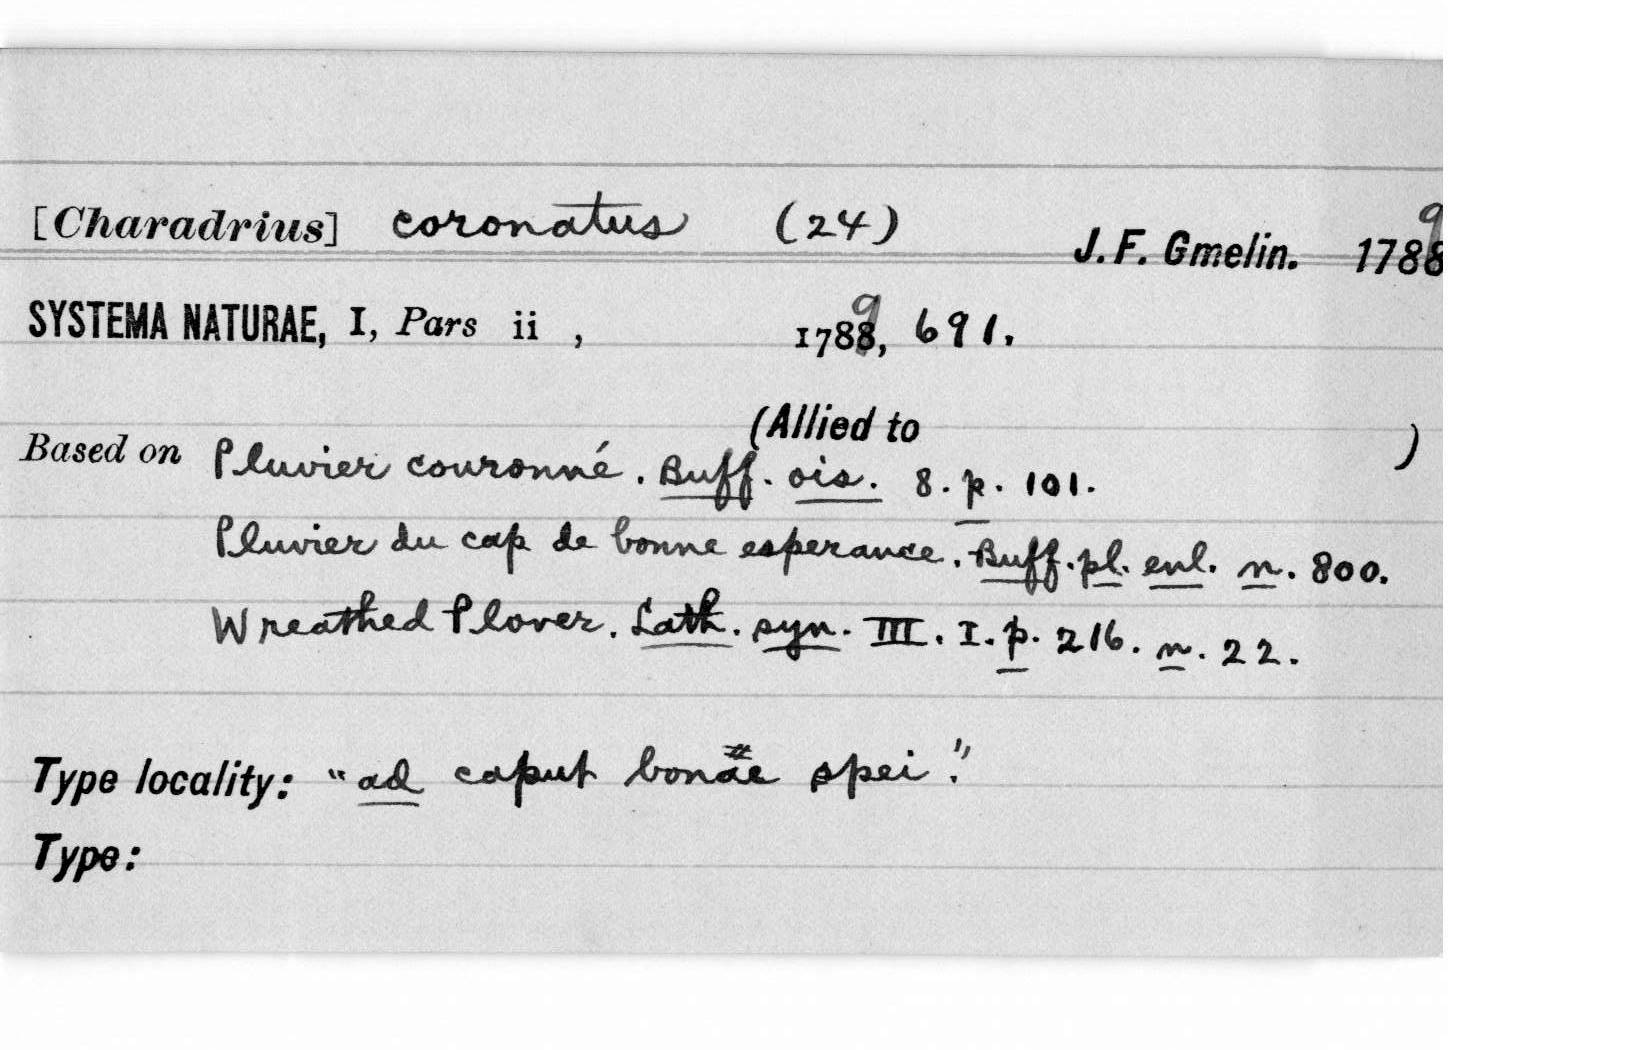 [Charadrius] coronatus (24) J. F. Gmelin. 1789
SYSTEMA NATURAE, I, Pars ii , 1789, 691.
(Allied to )
Based on Pluvier couronné. Buff. ois. 8. p. 101.
Pluvier du cap de bonne esperance. Buff. pl. enl. n. 800.
Wreathed Plover. Lath. syn. III. I. p. 216. n. 22.
Type locality: "ad caput bonae spei."
Type: